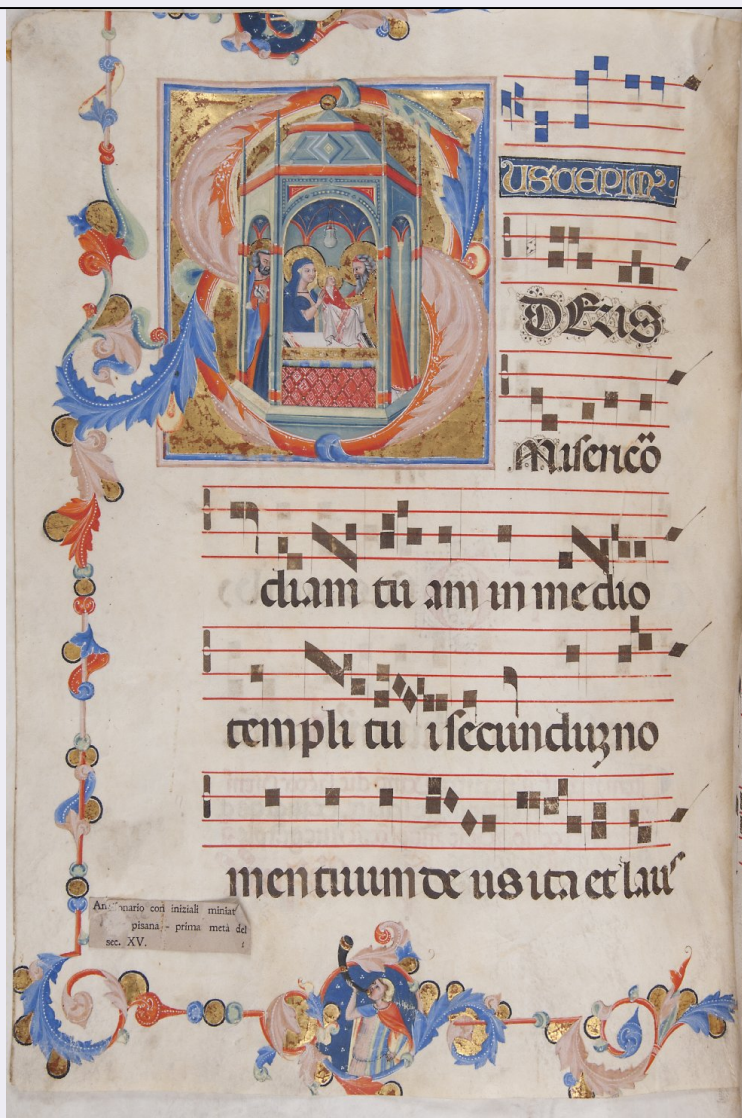 SUSCEPIMꝰ
DEUS
Miserico
diam tu am in medio
templi tu i secunduꝫ no
men tuum de us ita et laus
con iniziali
pisana - prima metà del
sec. XV.